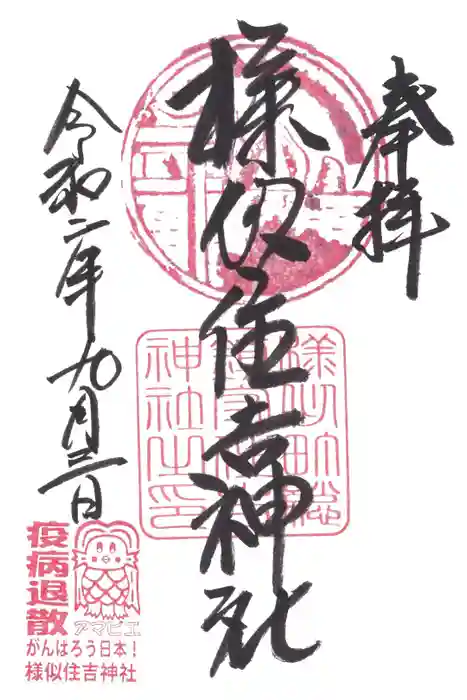 奉拝
様似住吉神社
令和二年九月三日
様似町総
鎮守住吉
神社之印
疫病退散
アマビエ
がんばろう日本！
様似住吉神社